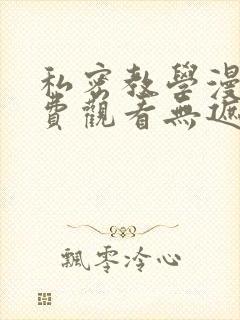 私密教學漫
費觀看無遮
飄零冷心